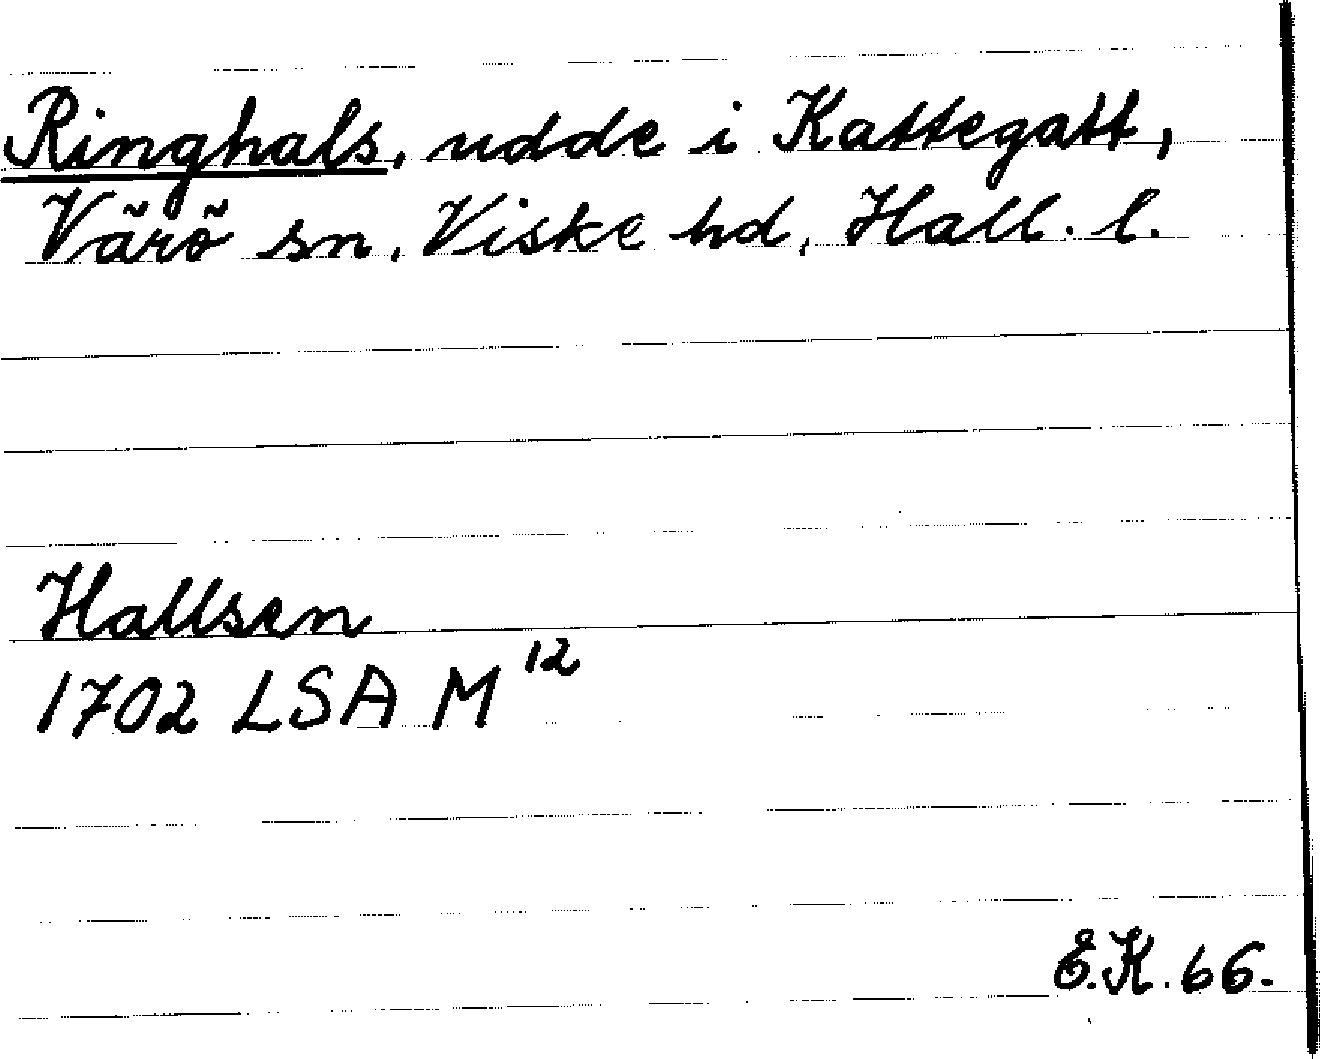 Ringhals, udde i Kattegatt,
Värö sn, Viske hd, Hall. l.
Hallsen
1702 LSA M 12
E.K. 66.